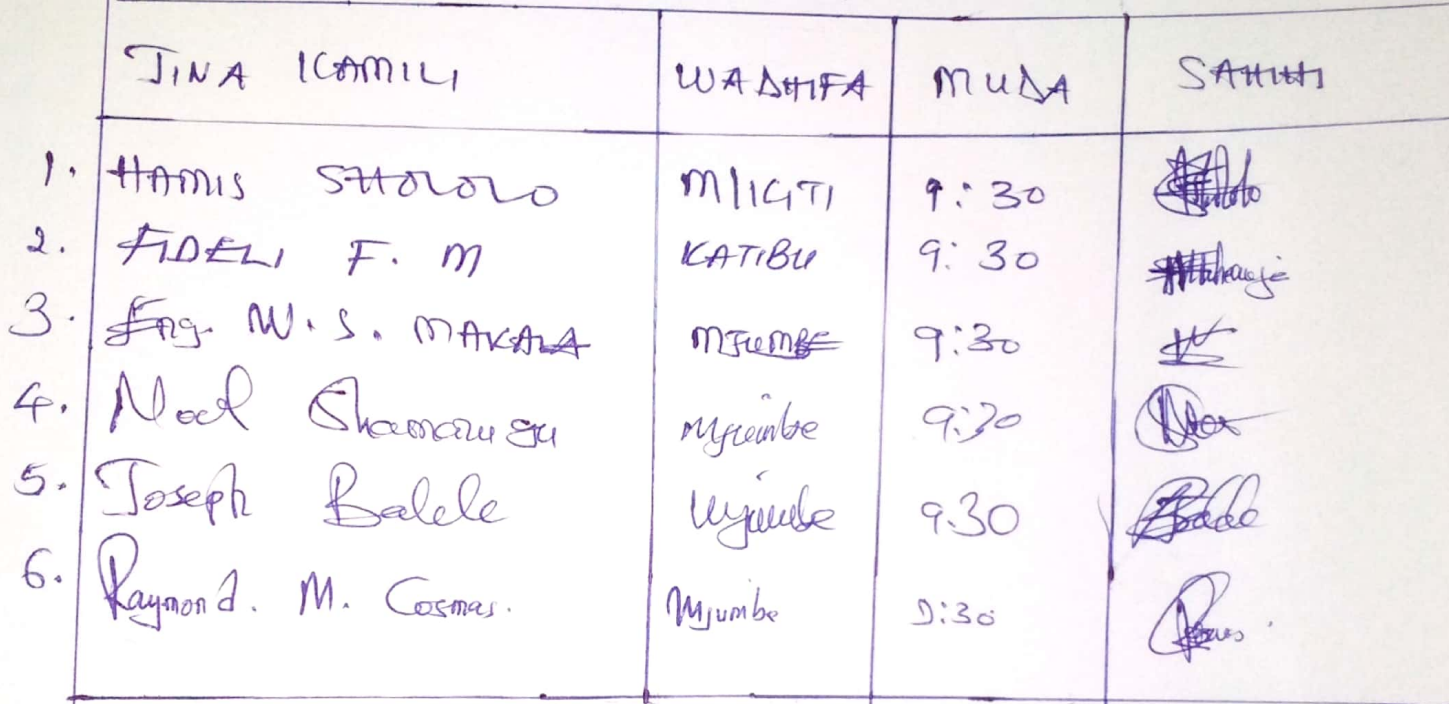 JINA KAMILI WADHIFA MUDA SAHIHI
1. HAMIS SHOLOLO M/KITI 9:30
2. FIDELI F. M KATIBU 9:30
3. Eng. W.S. MAKALA MJUMBE 9:30
4. Noel Mjumbe 9:30
5. Joseph Balele Mjumbe 9.30
6. Raymond. M. Cosmas. Mjumbe 9:30